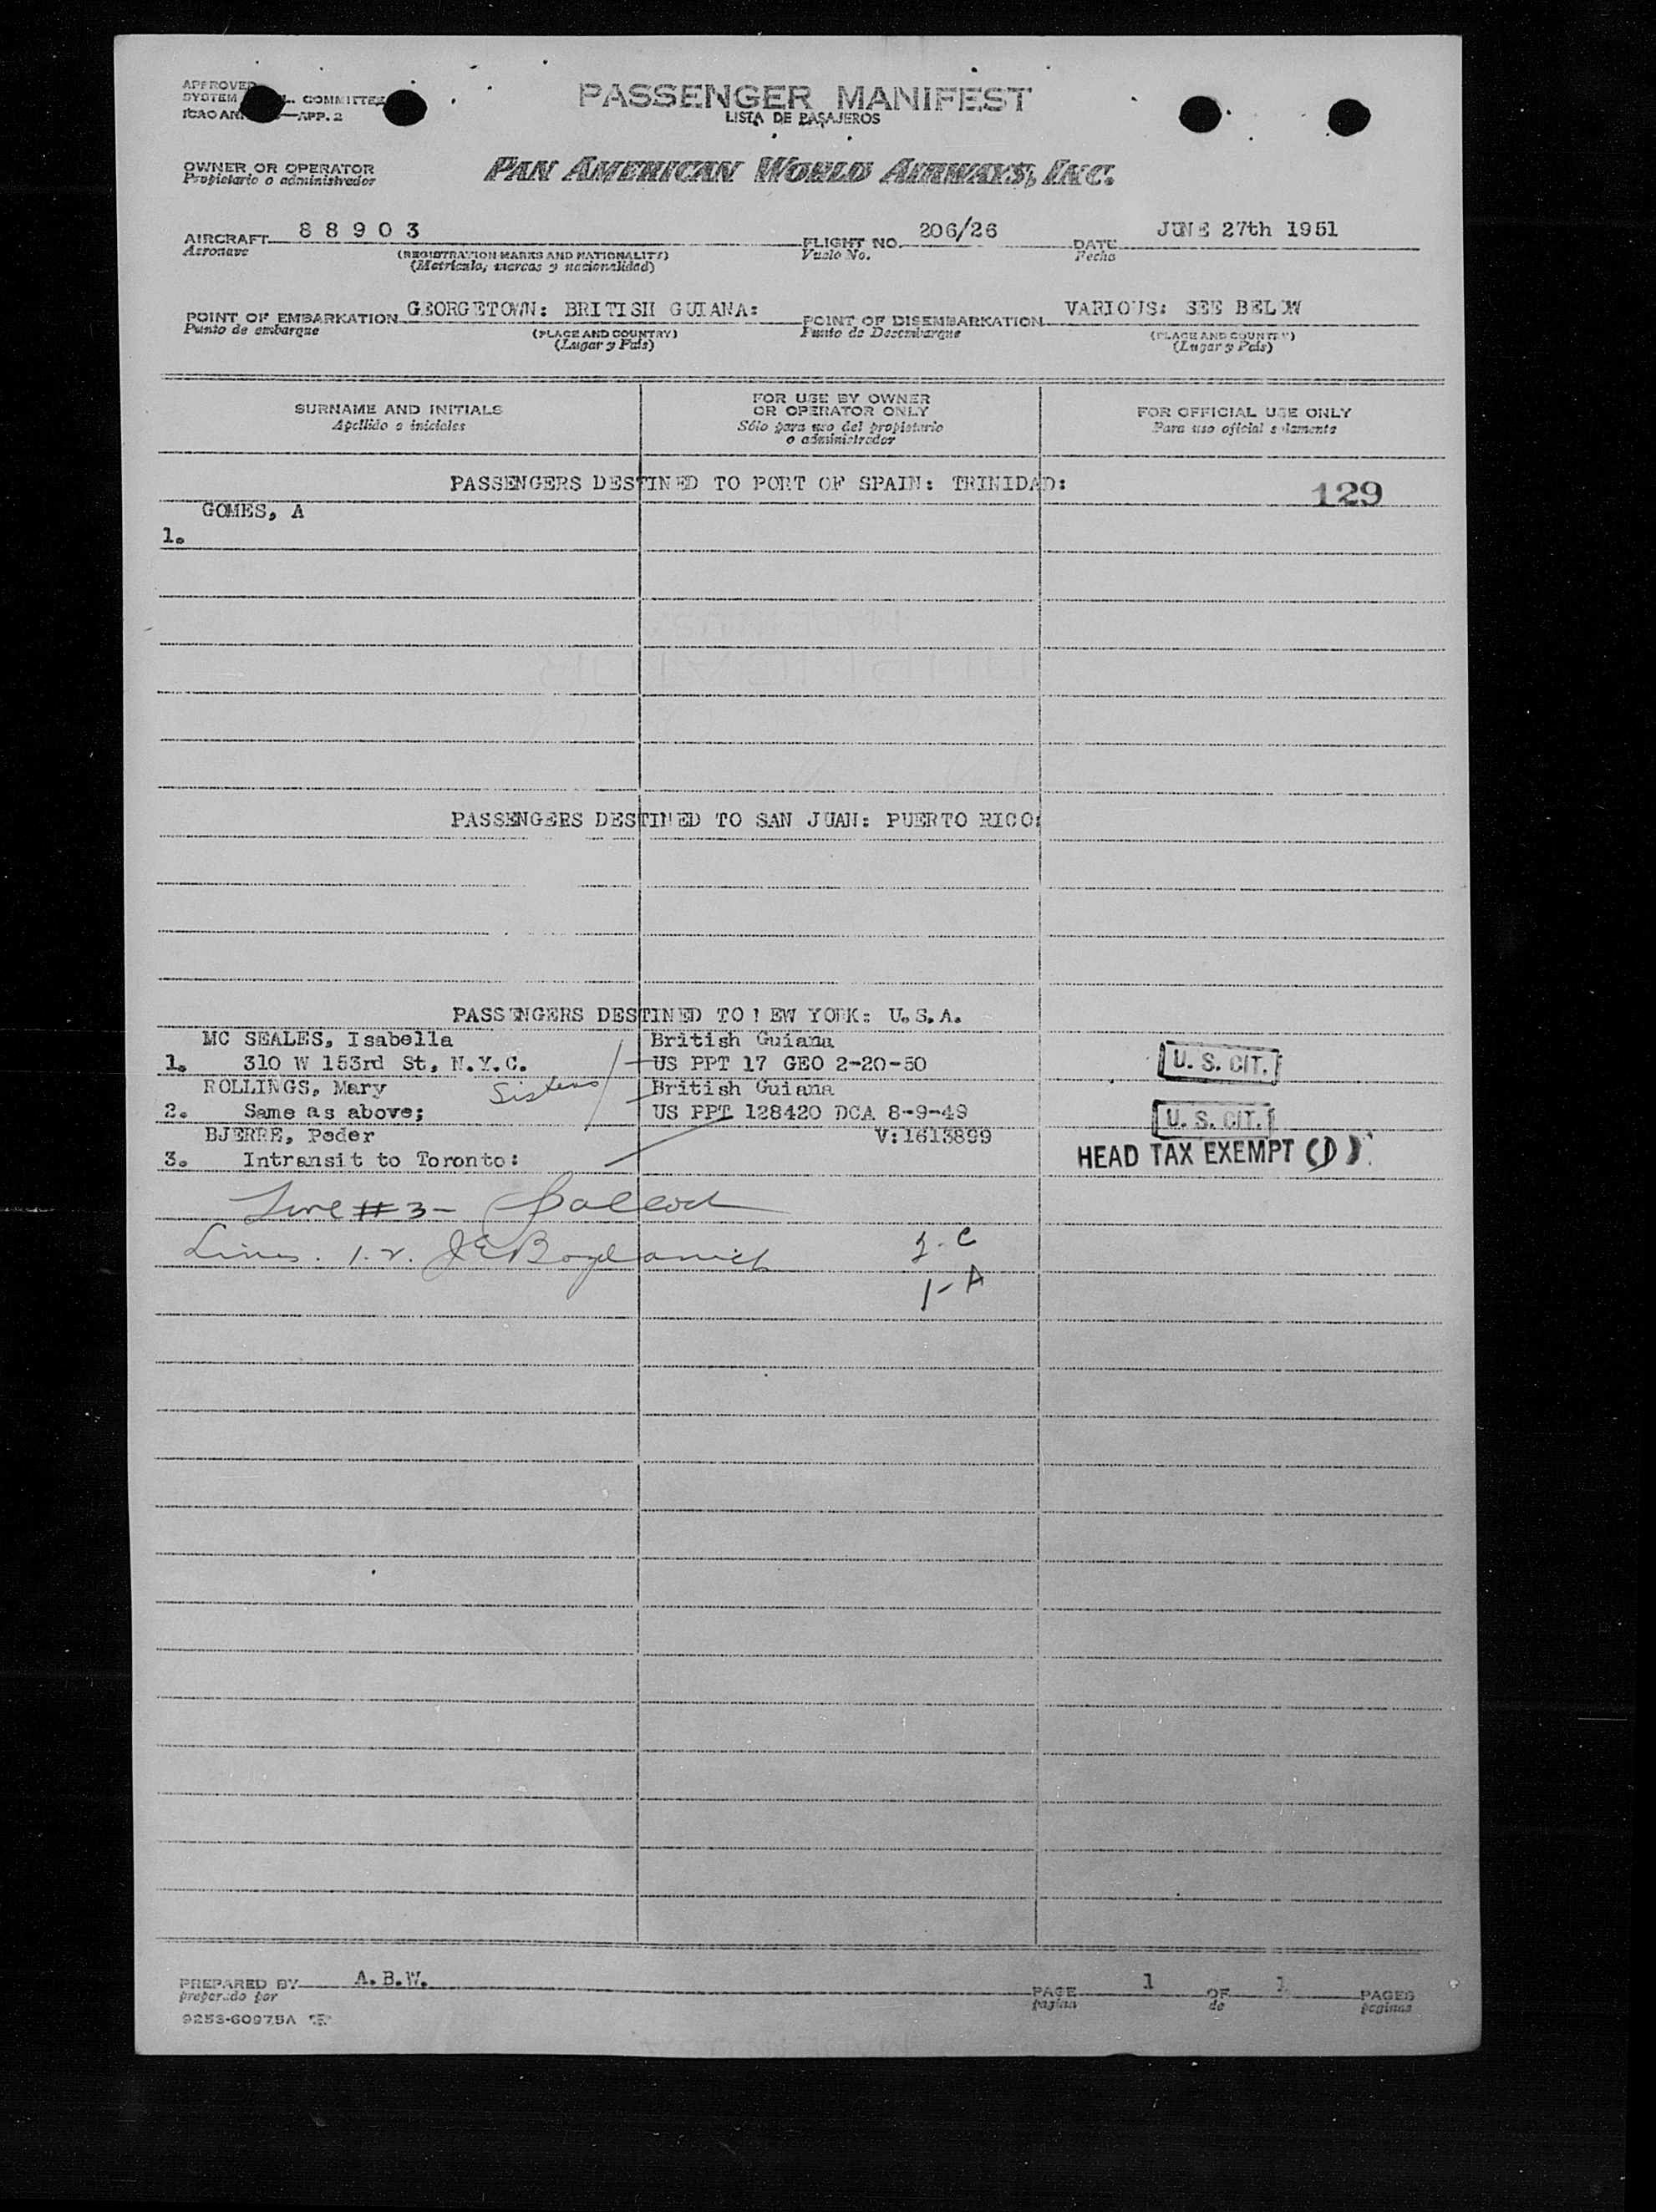 APPROVED
SYSTEM COMMITTEE
ICAO APP. 2
PASSENGER MANIFEST
LISTA DE PASAJEROS
OWNER OR OPERATOR
Propietario o administrador
PAN AMERICAN WORLD AIRWAYS, INC.
AIRCRAFT 8 8 9 0 3 FLIGHT NO. 206/26 DATE JUNE 27th 1951
Aeronave (REGISTRATION MARKS AND NATIONALITY) Vuelo No. Fecha
(Matrícula, marcas y nacionalidad)
POINT OF EMBARKATION GEORGETOWN: BRITISH GUIANA: POINT OF DISEMBARKATION VARIOUS: SEE BELOW
Punto de embarque (PLACE AND COUNTRY) Punto de Desembarque (PLACE AND COUNTRY)
(Lugar y País) (Lugar y País)
SURNAME AND INITIALS
Apellido e iniciales
FOR USE BY OWNER
OR OPERATOR ONLY
Sólo para uso del propietario
o administrador
FOR OFFICIAL USE ONLY
Para uso oficial solamente
PASSENGERS DESTINED TO PORT OF SPAIN: TRINIDAD:
129
GOMES, A
1.
PASSENGERS DESTINED TO SAN JUAN: PUERTO RICO:
PASSENGERS DESTINED TO NEW YORK: U.S.A.
MC SEALES, Isabella British Guiana
1. 310 W 153rd St, N.Y.C. US PPT 17 GEO 2-20-50 U. S. CIT.
ROLLINGS, Mary Sisters British Guiana
2. Same as above; US PPT 128420 DCA 8-9-49 U. S. CIT.
BJERRE, Peder V:1613899
3. Intransit to Toronto: HEAD TAX EXEMPT (1)
Line #3-
Lines. 1.2. JE Bogdanich 2-C
1-A
PREPARED BY A.B.W. PAGE 1 OF 1 PAGES
preparado por pagina de paginas
9253-60975A